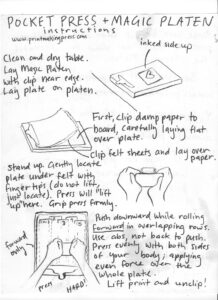 POCKET PRESS + MAGIC PLATEN
instructions
www.printmakingpress.com
inked side up
Clean and dry table.
Lay Magic Platen
with clip near edge.
Lay plate on platen.
First, clip damp paper to
board, carefully laying flat
over plate.
Clip felt sheets and lay over
paper.
Stand up. Gently locate
plate under felt with
finger tips (do not lift,
just locate). Press will "lift
up" here. Grip press firmly.
Forward
only
Press HARD!
Push downward while rolling
Forward in overlapping rows.
Use abs, not back to push.
Press evenly with both sides
of your body; applying
even force over the
whole plate.
Lift print and unclip!